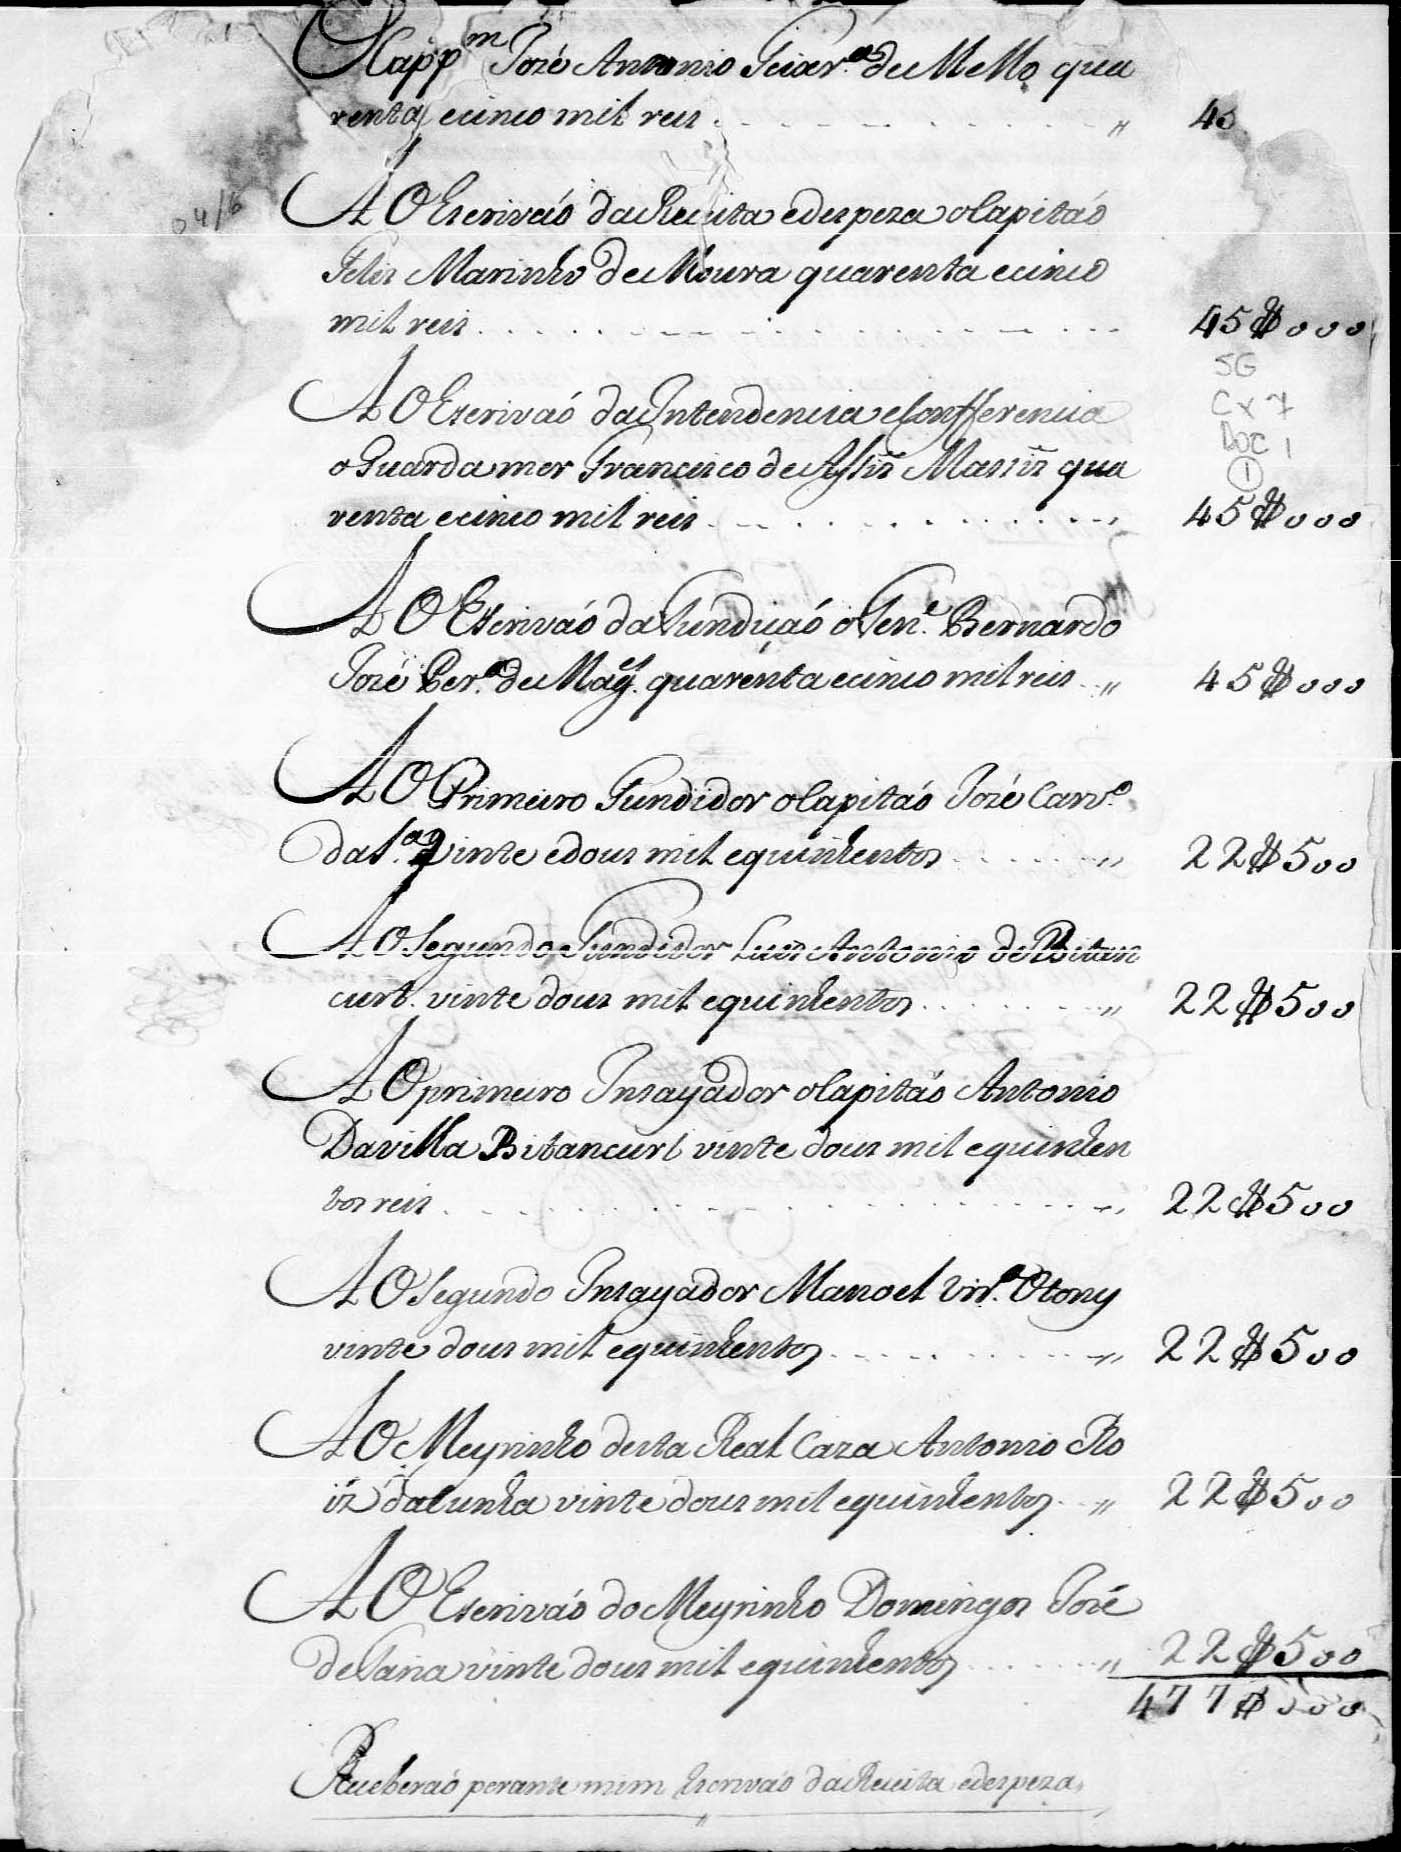 O Capp.m Jozé Antonio Teixr.a de Mello qua
renta e cinco mil reis 45
04/6
Ao Escrivaó da Receita e despeza o Capitaó
Felis Marinho de Moura quarenta e cinco
mil reis 45$000
SG
Cx 7
Doc 1
1
Ao Escrivaó da Intendencia e Confferencia
o Guarda mor Francisco de Assis Mar qua
renta e cinco mil reis 45$000
Ao Escrivaó da Fundiçaó o Ten.e Bernardo
Jozé Per.a de quarenta e cinco mil reis 45$000
Ao Primeiro Fundidor o Capitaó Jozé Carv.o
da S.a vinte e dous mil e quinhentos 22$500
Ao Segundo Fundidor Luis Antonio de Bitan
curt. vinte dous mil e quinhentos 22$500
Ao primeiro Insayador o Capitaó Antonio
Davilla Bitancurt vinte dous mil e quinhen
tos reis 22$500
Ao Segundo Insayador Manoel Vir.a Otony
vinte dous mil e quinhentos 22$500
Ao Meyrinho desta Real Caza Antonio Ro
iz da Cunha vinte dous mil e quinhentos 22$500
Ao Escrivaó do Meyrinho Domingos Jozé
de Faria vinte dous mil e quinhentos 22$500
477$000
Receberaó perante mim Escrivaó da Receita e despeza